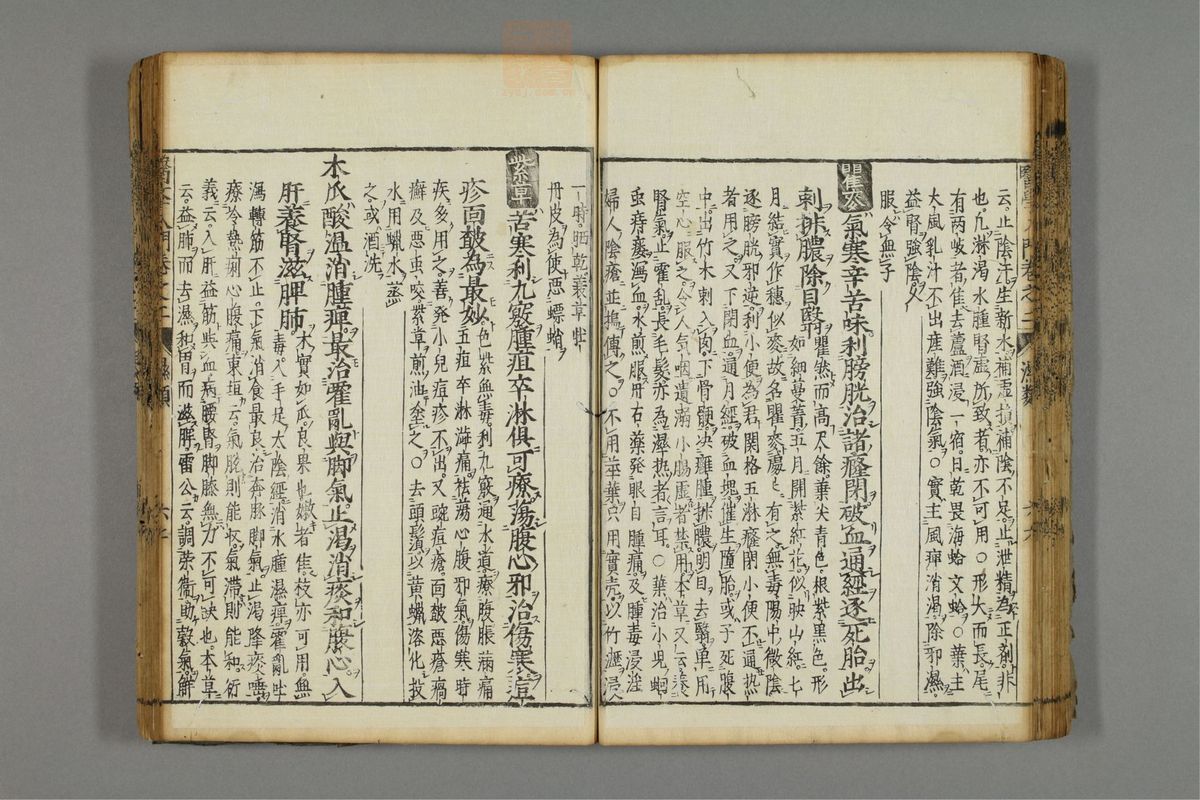 云止陰汗生新水補虛損補陰不足止泄精為正劑非
也凡淋渴水腫腎虛所致者亦不可用○形大而長尾
有兩岐者佳去蘆酒浸一宿日乾畏海蛤文蛤○葉主
大風乳汁不出產難強陰氣○實主風痺消渴除邪濕
益腎強陰久
服令無子
瞿麥氣寒辛苦味利膀胱治諸癃閉破血通經逐死胎出
刺排膿除目翳
瞿然而高尺餘葉尖青色根紫黑色形
如細蔓菁五月開紫紅花似映山紅七
月結實作穗似麥故名瞿麥處处有之無毒陽中微陰
逐膀胱邪逆利小便為君關格五淋癃閉小便不通熱
者用之又下閉血通月經破血塊催生墮胎或子死腹
中出竹木刺入肉下骨鯁決癰腫排膿明目去翳單用
空心服之令人氣咽遺溺小腸虛者禁用本草又云養
腎氣止霍亂長毛髮亦為濕熱者言耳○葉治小兒蛔
虫痔瘻瀉血水煎服肝石藥發眼目腫痛及腫毒浸淫
婦人陰瘡並搗傅之○不用莖葉只用實壳以竹瀝浸
一時晒乾蓑草牡
丹皮為使惡螵蛸
紫草苦寒利九竅腫疽卒淋俱可療蕩腹心邪治傷寒痘
疹面皶為最妙
色紫無毒利九竅通水道療腹脹滿痛
五疸卒淋澼痛祛蕩心腹邪氣傷寒時
疾多用之善發小兒痘疹不出又豌痘瘡面皶惡瘡瘑
癬及惡虫咬紫草煎油塗之○去頭鬚以黃蠟溶化投
水用蠟水蒸
之或酒洗
木瓜酸溫消腫痺最治霍亂與脚氣止渴消痰和腹心入
肝養腎滋脾肺
木實如瓜良果也嫩者佳枝亦可用無
毒入手足太陰經消水腫濕痺霍亂吐
瀉轉筋不止下氣消食最良治奔豚脚氣止渴降痰唾
療冷熱痢心腹痛東垣云氣脫則能收氣滯則能和衍
義云入肝益筋與血病腰腎脚膝無力不可缺也本草
云益肺而去濕和胃而滋脾雷公云調榮衛助穀氣解